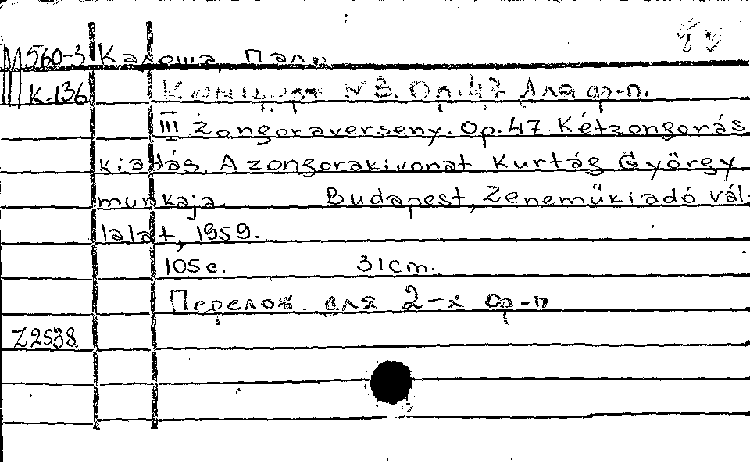 М560-3 Кадоша, Пал.
III К.136 Концерт №3. Op.47 Для фр-п.
III Zongoraverseny. Op.47 Kétzongorás
kiadás. A zongorakivonat Kurtág György
munkaja. Budapest, Zeneműkiadó vál-
lalat, 1959.
105 с. 31cm.
Перелож. для 2-х фр-п
Z2538